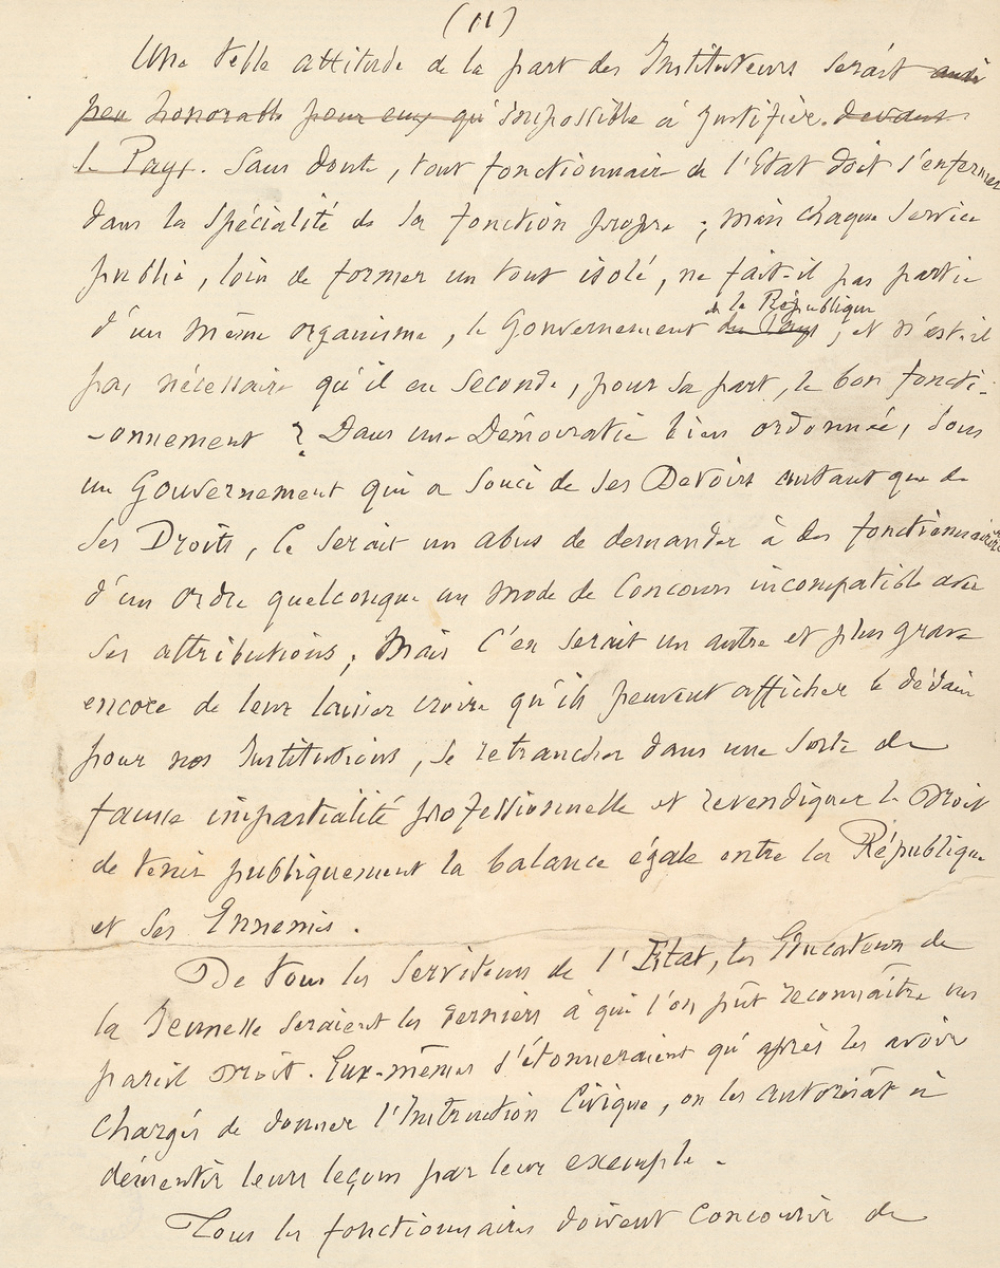 (11)
Une telle attitude de la part des Instituteurs serait aussi
peu honorable pour eux qu'impossible à justifier. devant
le Pays. Sans doute, tout fonctionnaire de l'Etat doit s'enfermer
dans la spécialité de sa fonction propre ; mais chaque service
public, loin de former un tout isolé, ne fait-il pas partie
de la République
d'un même organisme, le Gouvernement du Pays, et n'est-il
pas nécessaire qu'il en seconde, pour sa part, le bon foncti-
-onnement ? Dans une Démocratie bien ordonnée, sous
un Gouvernement qui a souci de ses Devoirs autant que de
ses Droits, ce serait un abus de demander à des fonctionnaires
d'un ordre quelconque un mode de concours incompatible avec
ses attributions ; Mais c'en serait un autre et plus grave
encore de leur laisser croire qu'ils peuvent afficher le dédain
pour nos Institutions, se retrancher dans une sorte de
fausse impartialité professionnelle et revendiquer le Droit
de tenir publiquement la balance égale entre la République
et ses Ennemis.
De tous les serviteurs de l'Etat, les Educateurs de
la Jeunesse seraient les derniers à qui l'on pût reconnaître un
pareil Droit. Eux-mêmes s'étonneraient qu'après les avoir
chargés de donner l'Instruction Civique, on les autorisât à
démentir leurs leçons par leur exemple.
Tous les fonctionnaires doivent concourir de